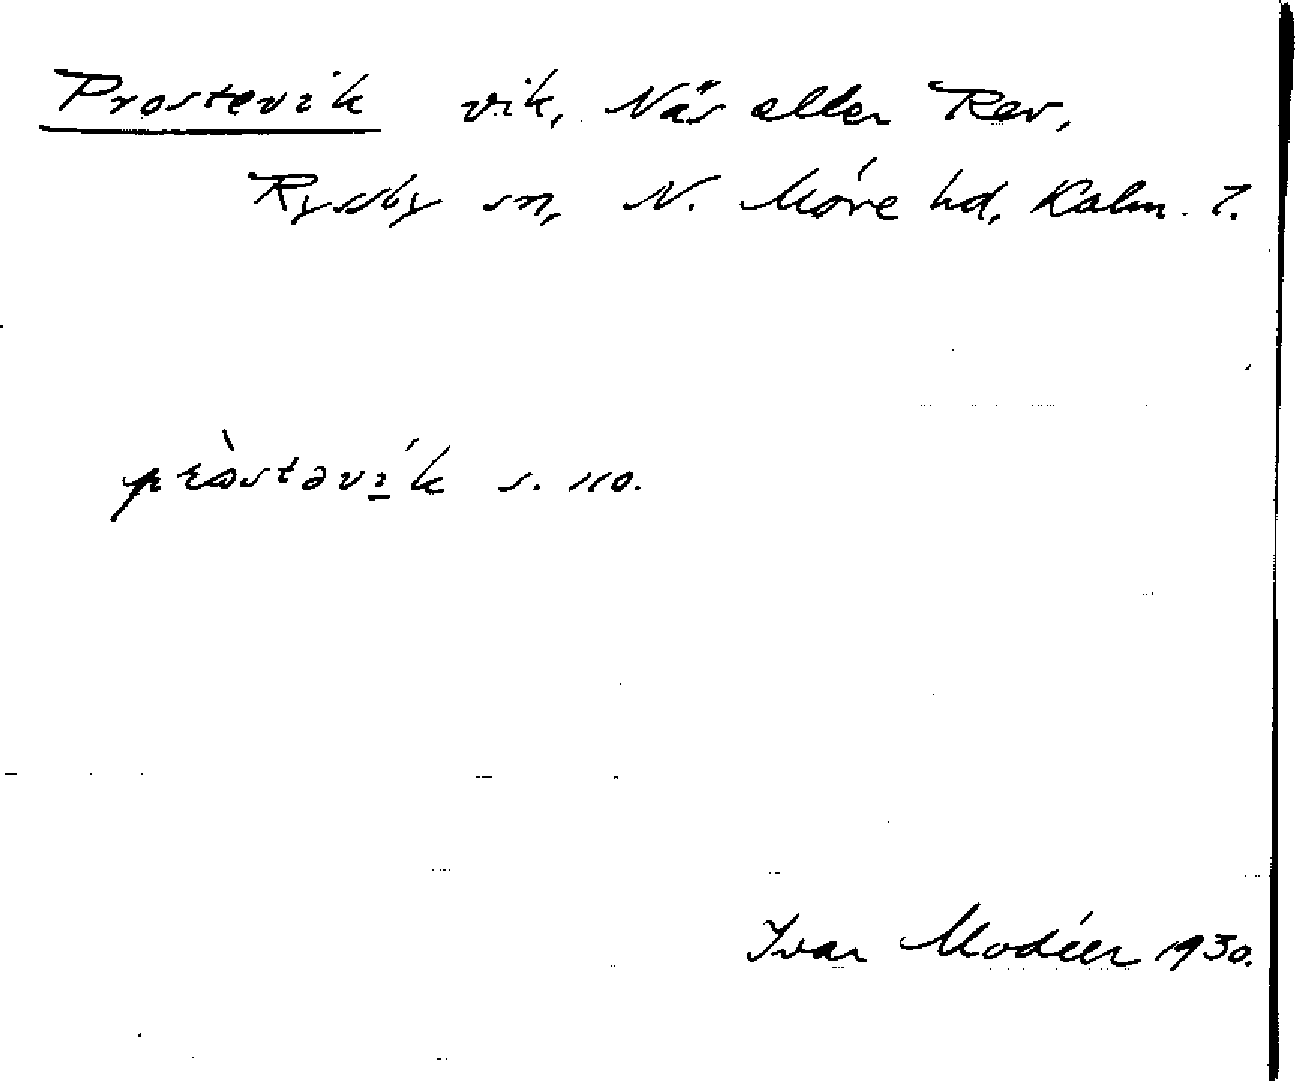 Prostevik vik, Näs eller Rev,
Ryssby sn, N. Möre hd, Kalm. l.
pròstəví̲k s. 110.
Ivar Modéer 1930.